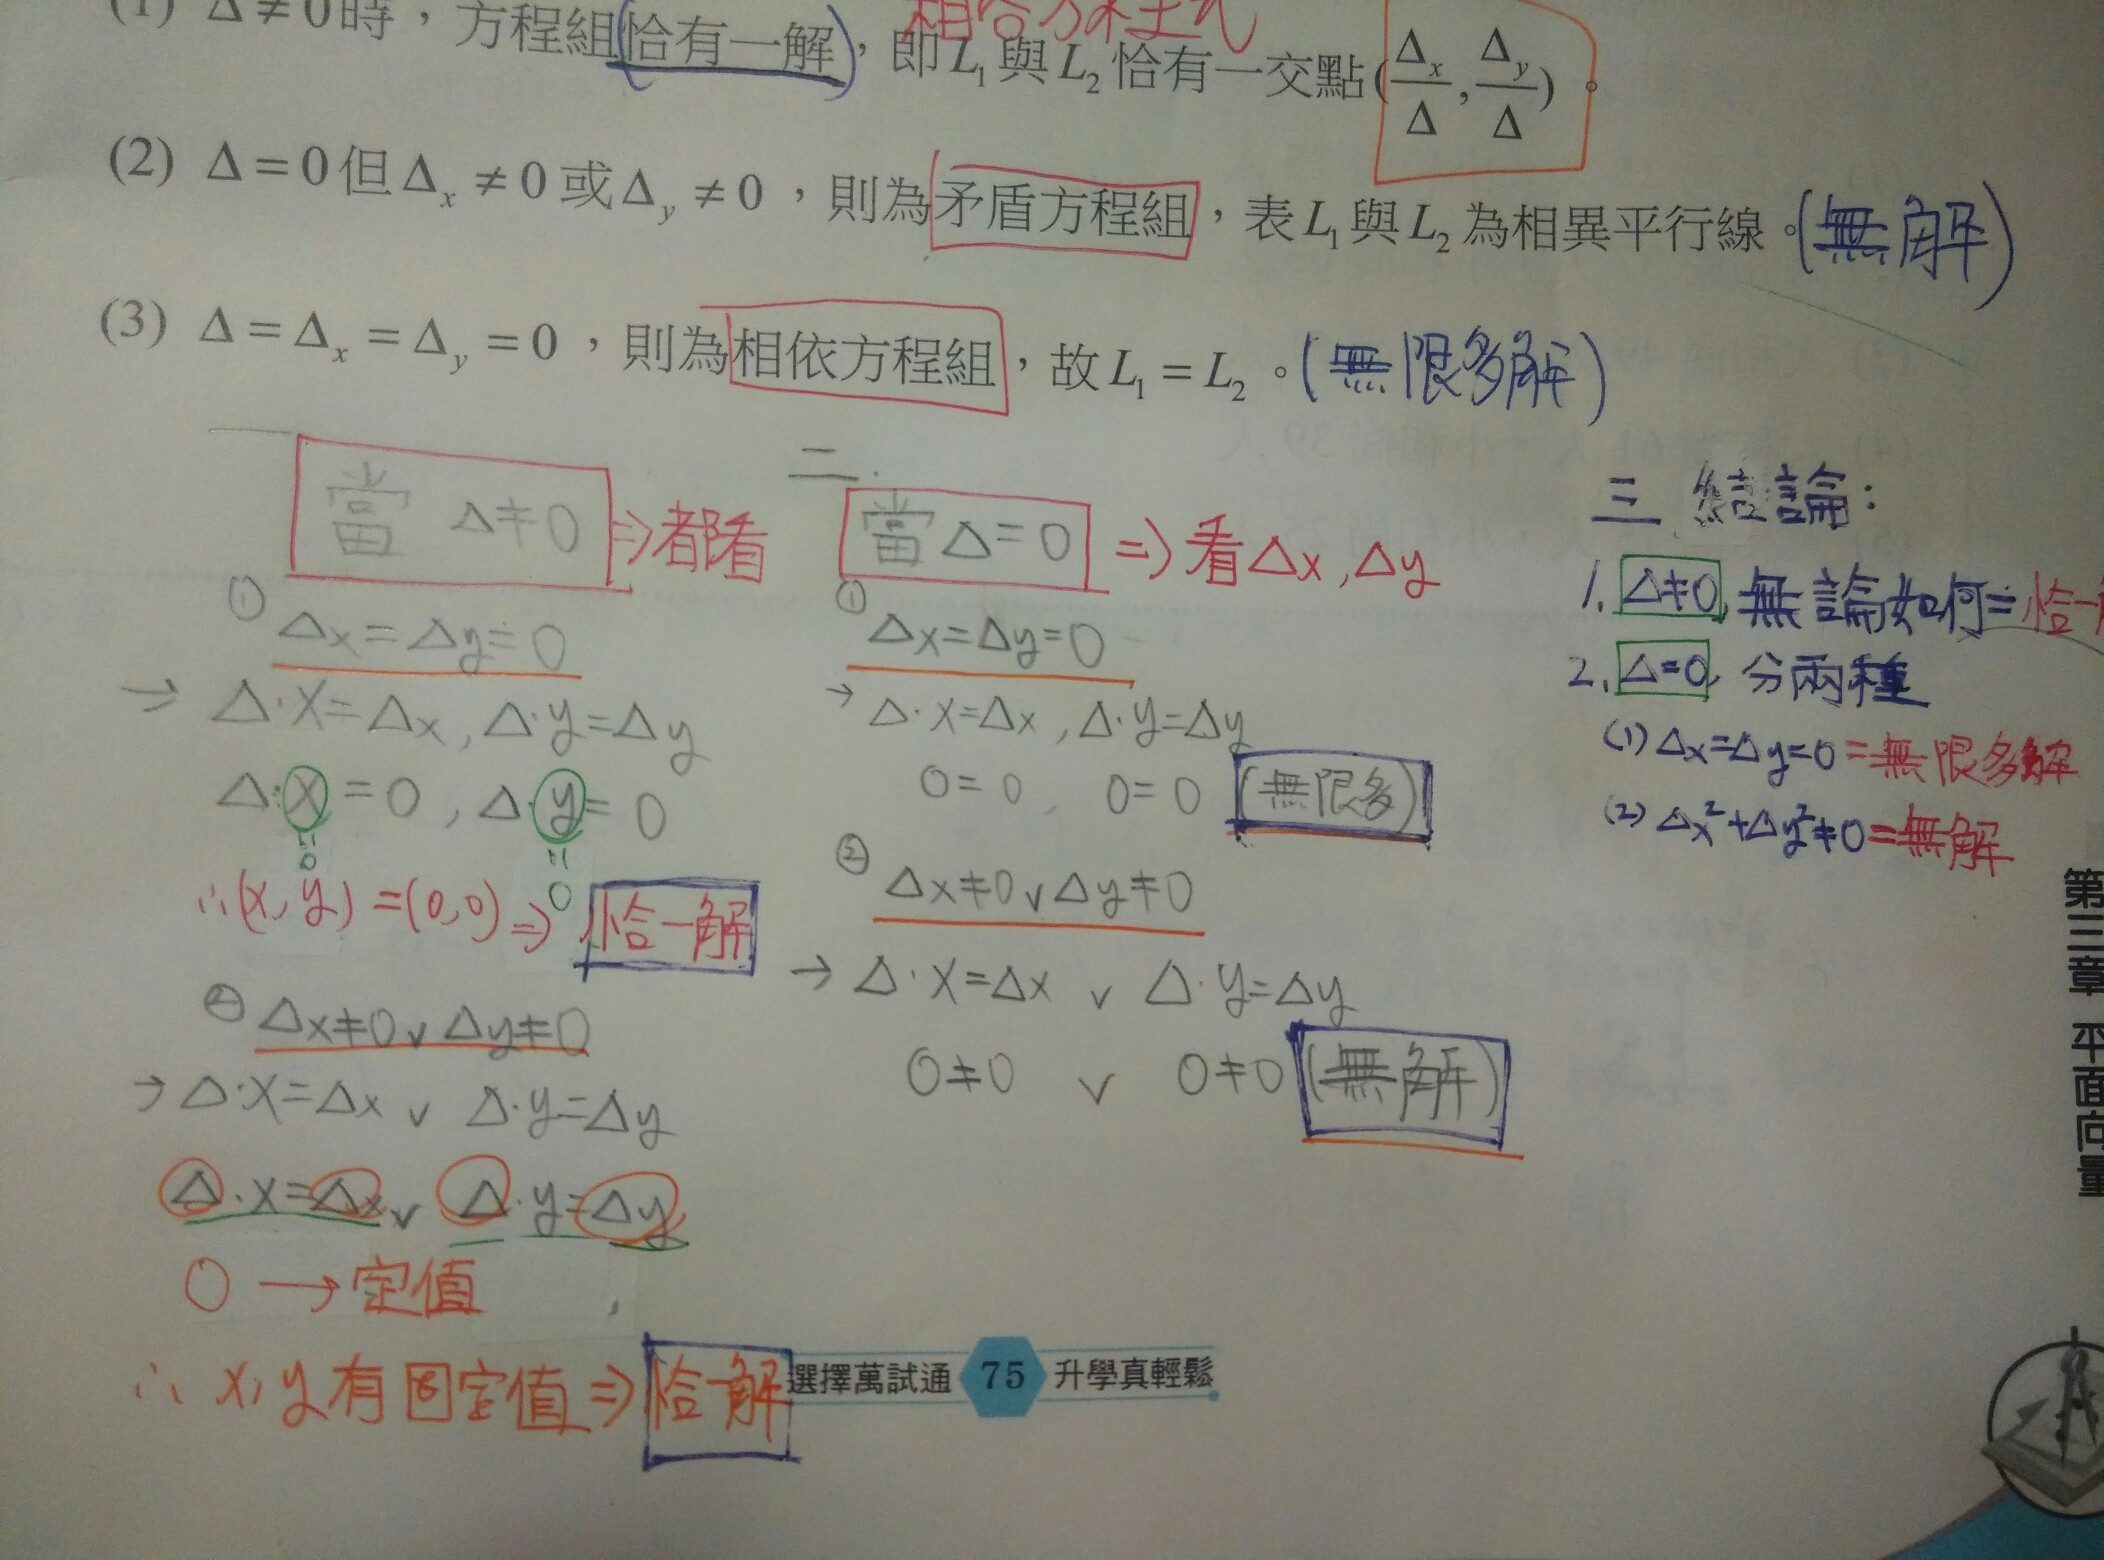 (1) Δ≠0時，方程組恰有一解，即L₁與L₂恰有一交點(Δx/Δ, Δy/Δ)。
(2) Δ=0但Δx≠0或Δy≠0，則為矛盾方程組，表L₁與L₂為相異平行線。(無解)
(3) Δ=Δx=Δy=0，則為相依方程組，故L₁=L₂。(無限多解)
當 Δ≠0 ⇒都看
① Δx=Δy=0
→ Δ·x=Δx, Δ·y=Δy
Δ·x=0, Δ·y=0
"0 "0
∴(x,y)=(0,0)⇒恰一解
② Δx≠0∨Δy≠0
→Δ·x=Δx∨Δ·y=Δy
Δ·x=Δx∨Δ·y=Δy
0→定值
∴x,y有固定值⇒恰一解
二.
當Δ=0 ⇒看Δx,Δy
① Δx=Δy=0
→Δ·x=Δx, Δ·y=Δy
0=0, 0=0 (無限多)
② Δx≠0∨Δy≠0
→Δ·x=Δx ∨ Δ·y=Δy
0≠0 ∨ 0≠0 (無解)
三.結論:
1.Δ≠0,無論如何=恰一
2.Δ=0,分兩種
(1)Δx=Δy=0=無限多解
(2)Δx²+Δy²≠0=無解
第三章 平面向量
選擇萬試通 75 升學真輕鬆